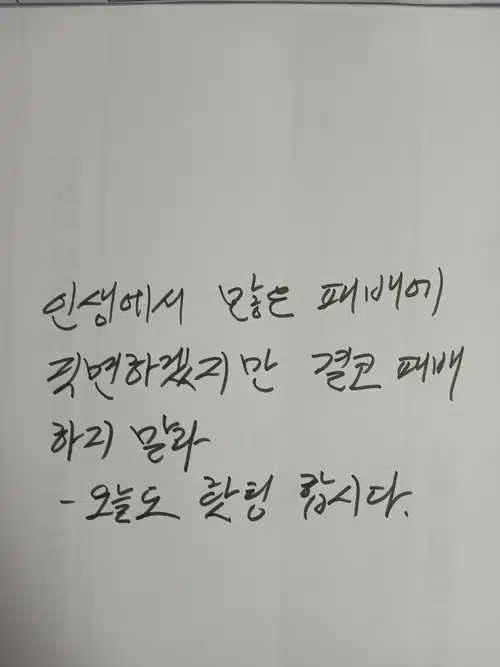 인생에서 많은 패배에
직면하겠지만 결코 패배
하지 말라
- 오늘도 홧팅 합시다.